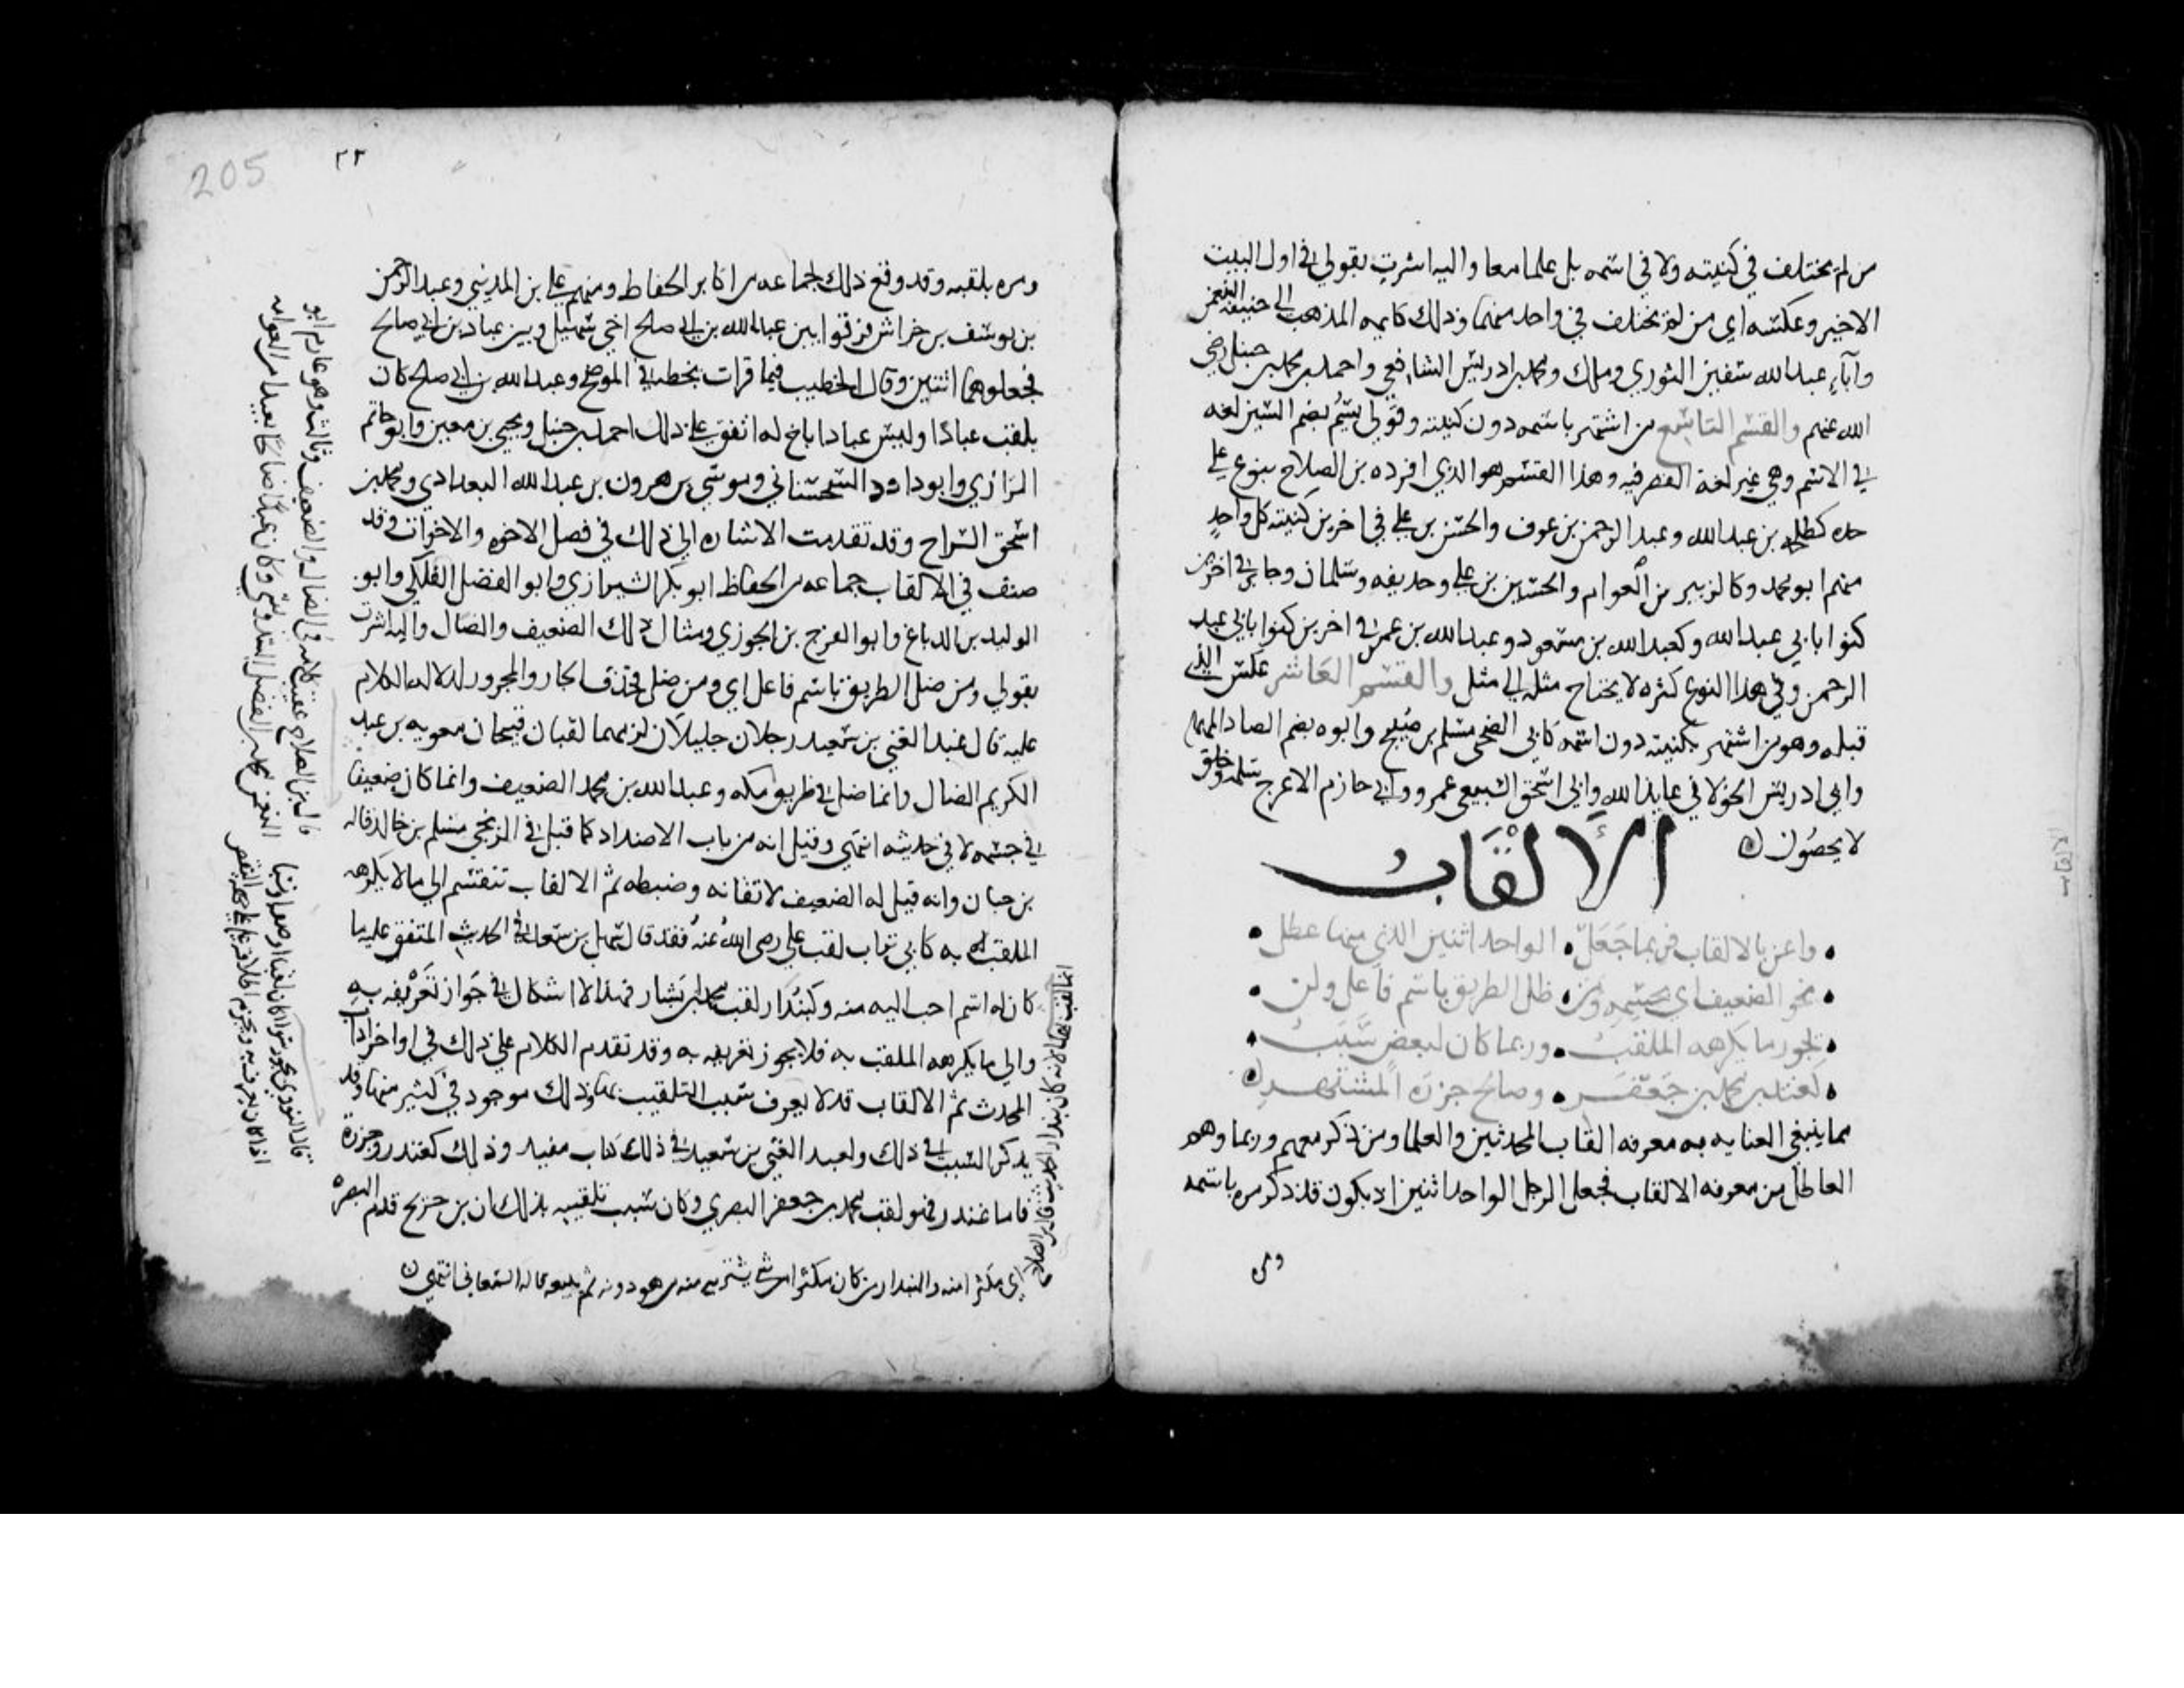 من لم يختلف في كنيته ولا في اسمه بل علما معا واليه اشرت بقولي في اول البيت
الاخير وعكسه اي من لم يختلف في واحد منهما وذلك كايمه المذهب ابي حنيفه النعمن
وآباء عبدالله سفين الثوري وملك ومحمد بن ادريس الشافعي واحمد بن محمد بن حنبل رضي
الله عنهم والقسم التاسع من اشتهر باسمه دون كنيته وقولي بسُم بضم السين لغه
في الاسم وهي غير لغة القصر فيه وهذا القسم هو الذي افرده بن الصلاح بنوع على
حده كطلحه بن عبدالله وعبد الرحمن بن عوف والحسن بن علي في اخرين كنية كل واحد
منهم ابو محمد وكالزبير بن العوام والحسين بن علي وحذيفه وسلمان وجابر في اخرين
كنوا بابي عبدالله وكعبدالله بن مسعود وعبدالله بن عمر في اخرين كنوا بابي عبد
الرحمن وفي هذا النوع كثره لا يحتاج مثله الى مثل والقسم العاشر عكس الذي
قبله وهو من اشتهر بكنيته دون اسمه كابي الضحى مسلم بن صُبيح وابوه بضم الصاد المهمله
وابي ادريس الخولاني عايذ الله وابي اسحق السبيعي عمرو وابي حازم الاعرج سلمه وخلق
لا يحصون
الألْقَابُ
واعن بالالقاب فربما جَعَل الواحد اثنين الذي منها عطل
نحو الضعيف اي بجسمه ومن ضل الطريق باسم فاعل ولن
يجوز ما يكرهه الملقبُ وربما كان لبعضٍ سَبَبُ
كغندر محمد بن جَعفَر وصالح جزرَة المشتهر
مما ينبغي العنايه به معرفه القاب المحدثين والعلما ومن ذكر معهم وربما وهم
العاطل من معرفه الالقاب فجعل الرجل الواحد اثنين اذ يكون قد ذكر مره باسمه
ومره
205
٢٣
ومره بلقبه وقد وقع ذلك لجماعه من اكابر الحفاظ ومنهم علي بن المديني وعبد الرحمن
بن يوسف بن خراش فرقوا بين عبدالله بن ابي صالح اخي سهيل وبين عباد بن ابي صالح
فجعلوهما اثنين وقال الخطيب فيما قرات بخطه في الموضح وعبدالله بن ابي صالح كان
يلقب عبادا وليس عباد اباخ له اتفق على ذلك احمد بن حنبل ويحيى بن معين وابو حاتم
الرازي وابو داود السجستاني وموسى بن هرون بن عبدالله البغدادي ومحمد بن
اسحق السراج وقد تقدمت الاشاره الى ذلك في فصل الاخوه والاخوات وقد
صنف في الالقاب جماعه من الحفاظ ابو بكر الشيرازي وابو الفضل الفلكي وابو
الوليد بن الدباغ وابو الفرج بن الجوزي ومثال ذلك الضعيف والضال واليه اشرت
بقولي ومن ضل الطريق باسم فاعل اي ومن ضل فحذف الجار والمجرور لدلاله الكلام
عليه قال عبد الغني بن سعيد رجلان جليلان لزمهما لقبان قبيحان معويه بن عبد
الكريم الضال وانما ضل في طريق مكه وعبدالله بن محمد الضعيف وانما كان ضعيفا
في جسمه لا في حديثه انتهى وقيل انه من باب الاضداد كما قيل في الزنجي مسلم بن خالد قاله
بن حبان وانه قيل له الضعيف لاتقانه وضبطه ثم الالقاب تنقسم الى ما لا يكرهه
الملقب به كابي تراب لقب علي رضي الله عنه فقد قال سهل بن سعد في الحديث المتفق عليه ما
كان له اسم احب اليه منه وكبُندار لقب محمد بن بشار فهذا لا اشكال في جواز تعريفه به
والى ما يكرهه الملقب به فلا يجوز تعريفه به وقد تقدم الكلام على ذلك في اواخر اداب
المحدث ثم الالقاب قد لا يعرف سبب التلقيب بها وذلك موجود في كثير منها وقد
يذكر السبب في ذلك ولعبد الغني بن سعيد في ذلك كتاب مفيد وذلك كغندر وجزرة
فاما غندر فهو لقب محمد بن جعفر البصري وكان سبب تلقيبه بذلك ان بن جريج قدم البصره
انما لقب بهذا لانه كان بندار الحديث قاله بن الصلاح
اي مكثرا منه والبندار من كان مكثرا من شي يشتري منه من هو دونه ثم يبيعه قاله السمعاني انتهى
قال بن الصلاح عقيب كلامه في الضال والضعيف وثالث وهو عارم ابو
النعمن محمد بن الفضل السدوسي وكان عبدا صالحا بعيدا من العرامه
قال النووي يجوز سوا كان لقبا او صفا او نسبا
اذا كان يعرف به ويحرم اطلاقه على جهة التنقص